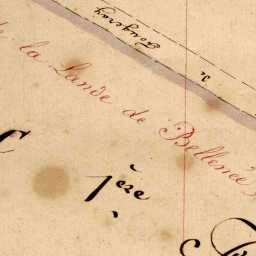 Fougeray
de
de la Lande de Bellenée
1ère